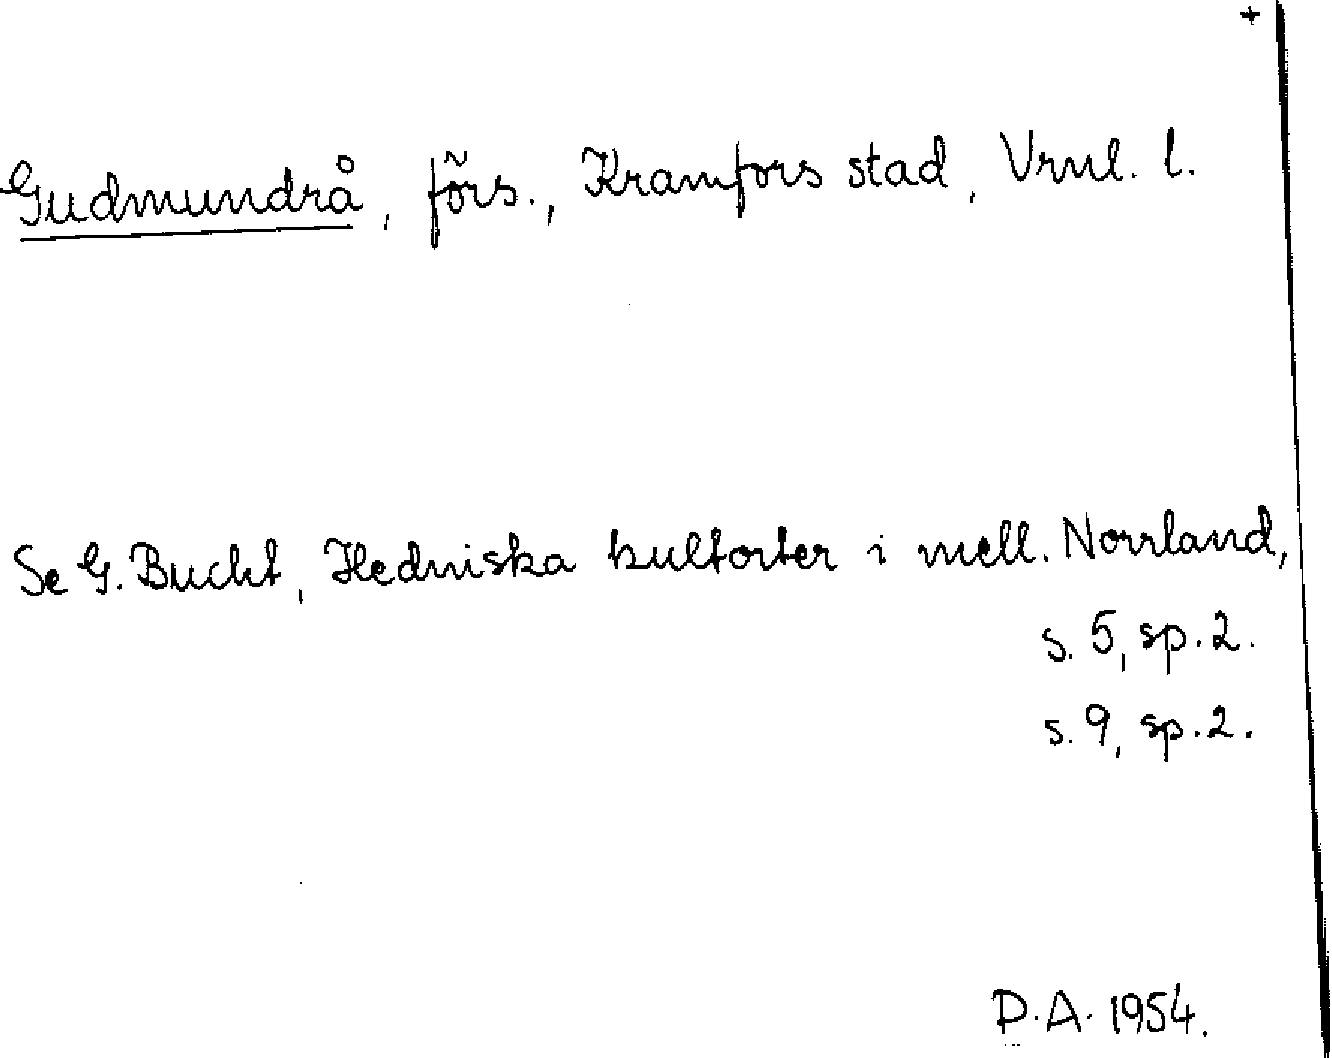 +
Gudmundrå, förs., Kramfors stad, Vrnl. l.
Se G. Bucht, Hedniska kultorter i mell. Norrland,
s. 5, sp. 2.
s. 9, sp. 2.
D. A. 1954.